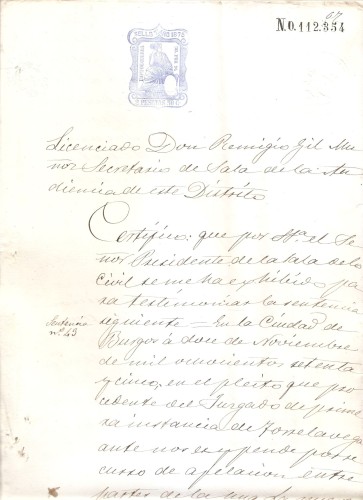 67
N.0.112.354
SELLO 10º 1875
Licenciado Don Remigio Gil Mu-
ñoz Secretario de Sala de la Au
diencia de este Distrito
Certifico: que por S.ª el Se
ñor Presidente de la Sala de lo
Civil se me ha exhibido pa
ra testimoniar la sentencia
Sentencia
nº 43
siguiente = En la Ciudad de
Burgos á doce de Noviembre
de mil ochocientos setenta
y cinco, en el pleito que pro
cedente del Juzgado de prime
ra instancia de Torrelavega
ante nos ex pende por re
curso de apelacion, entre
partes de la una